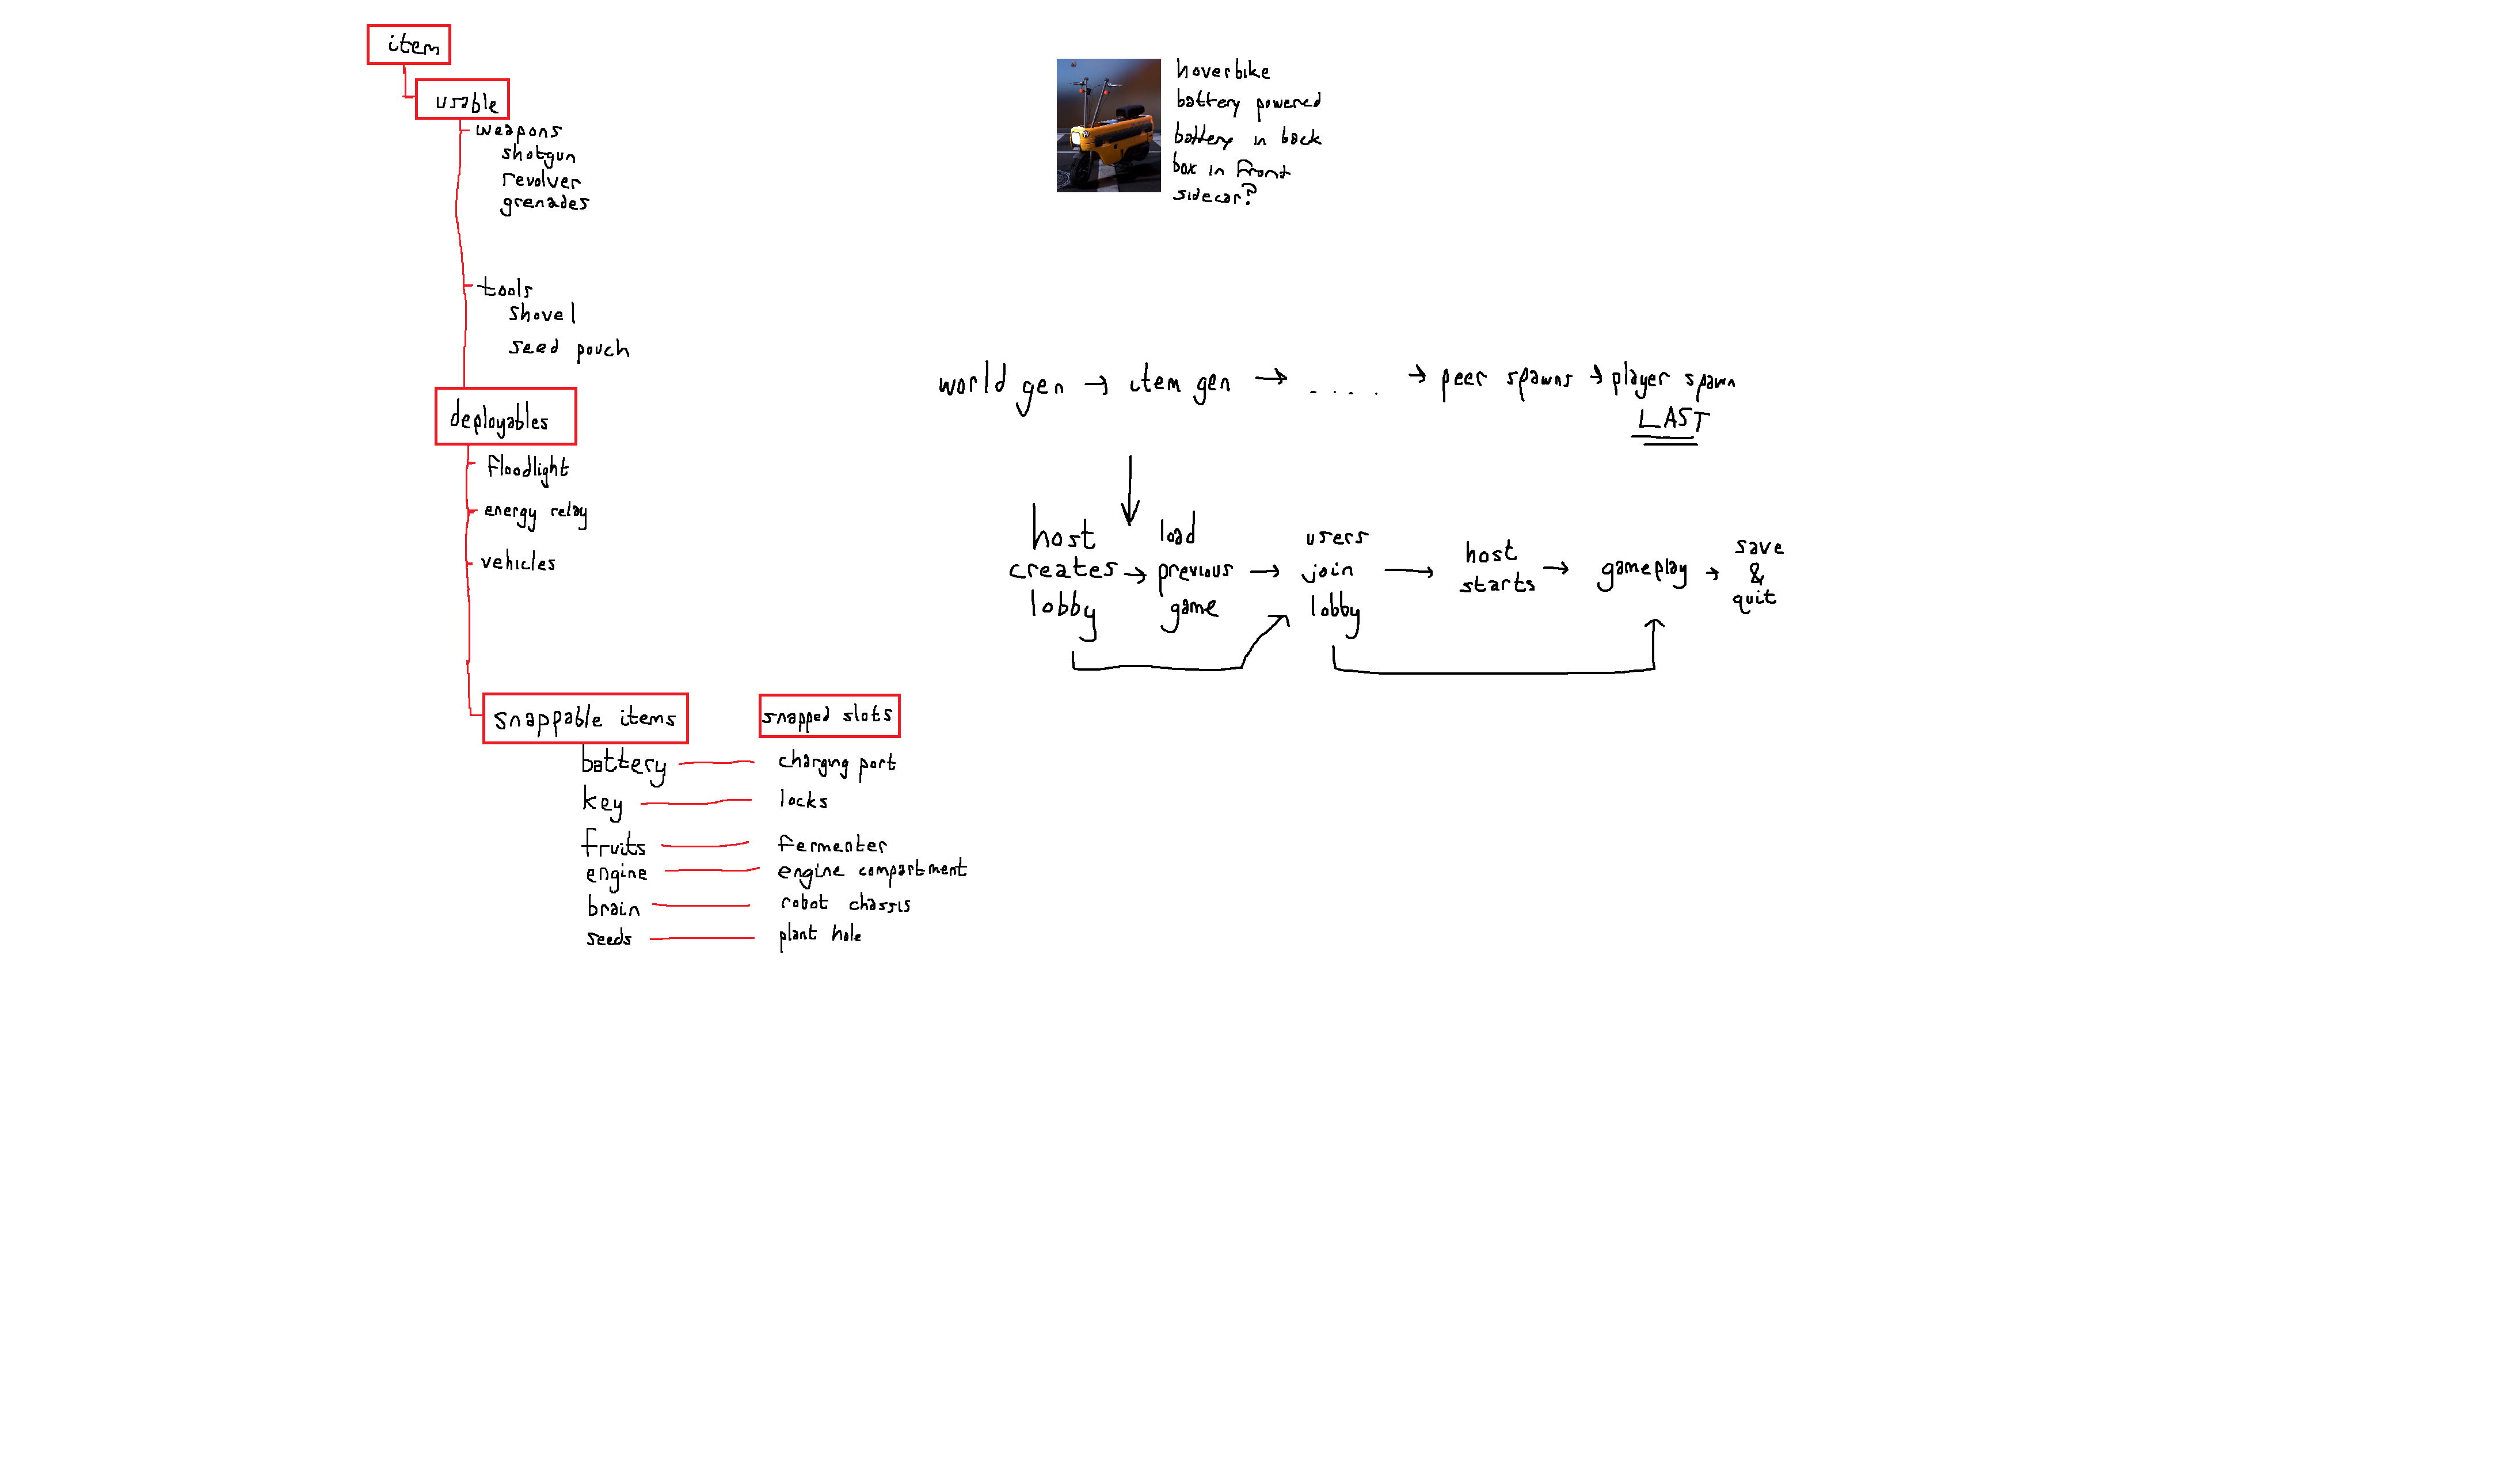 item
usable
weapons
shotgun
revolver
grenades
tools
shovel
seed pouch
deployables
floodlight
energy relay
vehicles
snappable items
snapped slots
battery
charging port
key
locks
fruits
fermenter
engine
engine compartment
brain
robot chassis
seeds
plant hole
hoverbike
battery powered
battery in back
box in front
sidecar?
world gen → item gen → . . . . → peer spawns → player spawn
LAST
host
creates
lobby
→
load
previous
game
→
users
join
lobby
→
host
starts
→
gameplay
→
save
&
quit